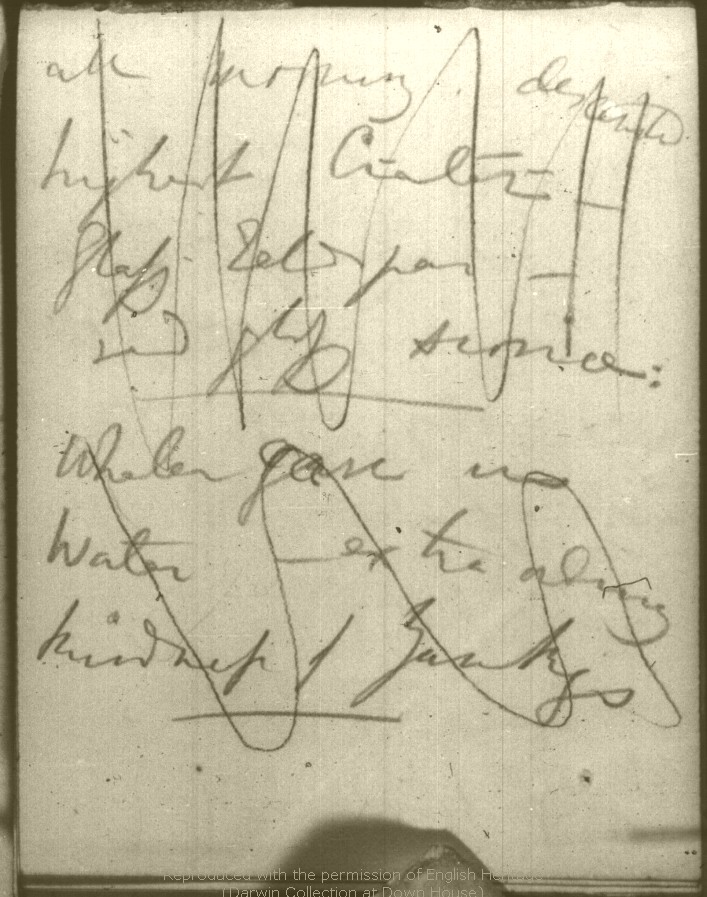 all morning. descended
highest Crater —
Glassy Feldspar —
red glassy scoriæ:
Whaler gave us
Water — extraordinary
kindness of Yankeys
Reproduced with the permission of English Heritage
(Darwin Collection at Down House)